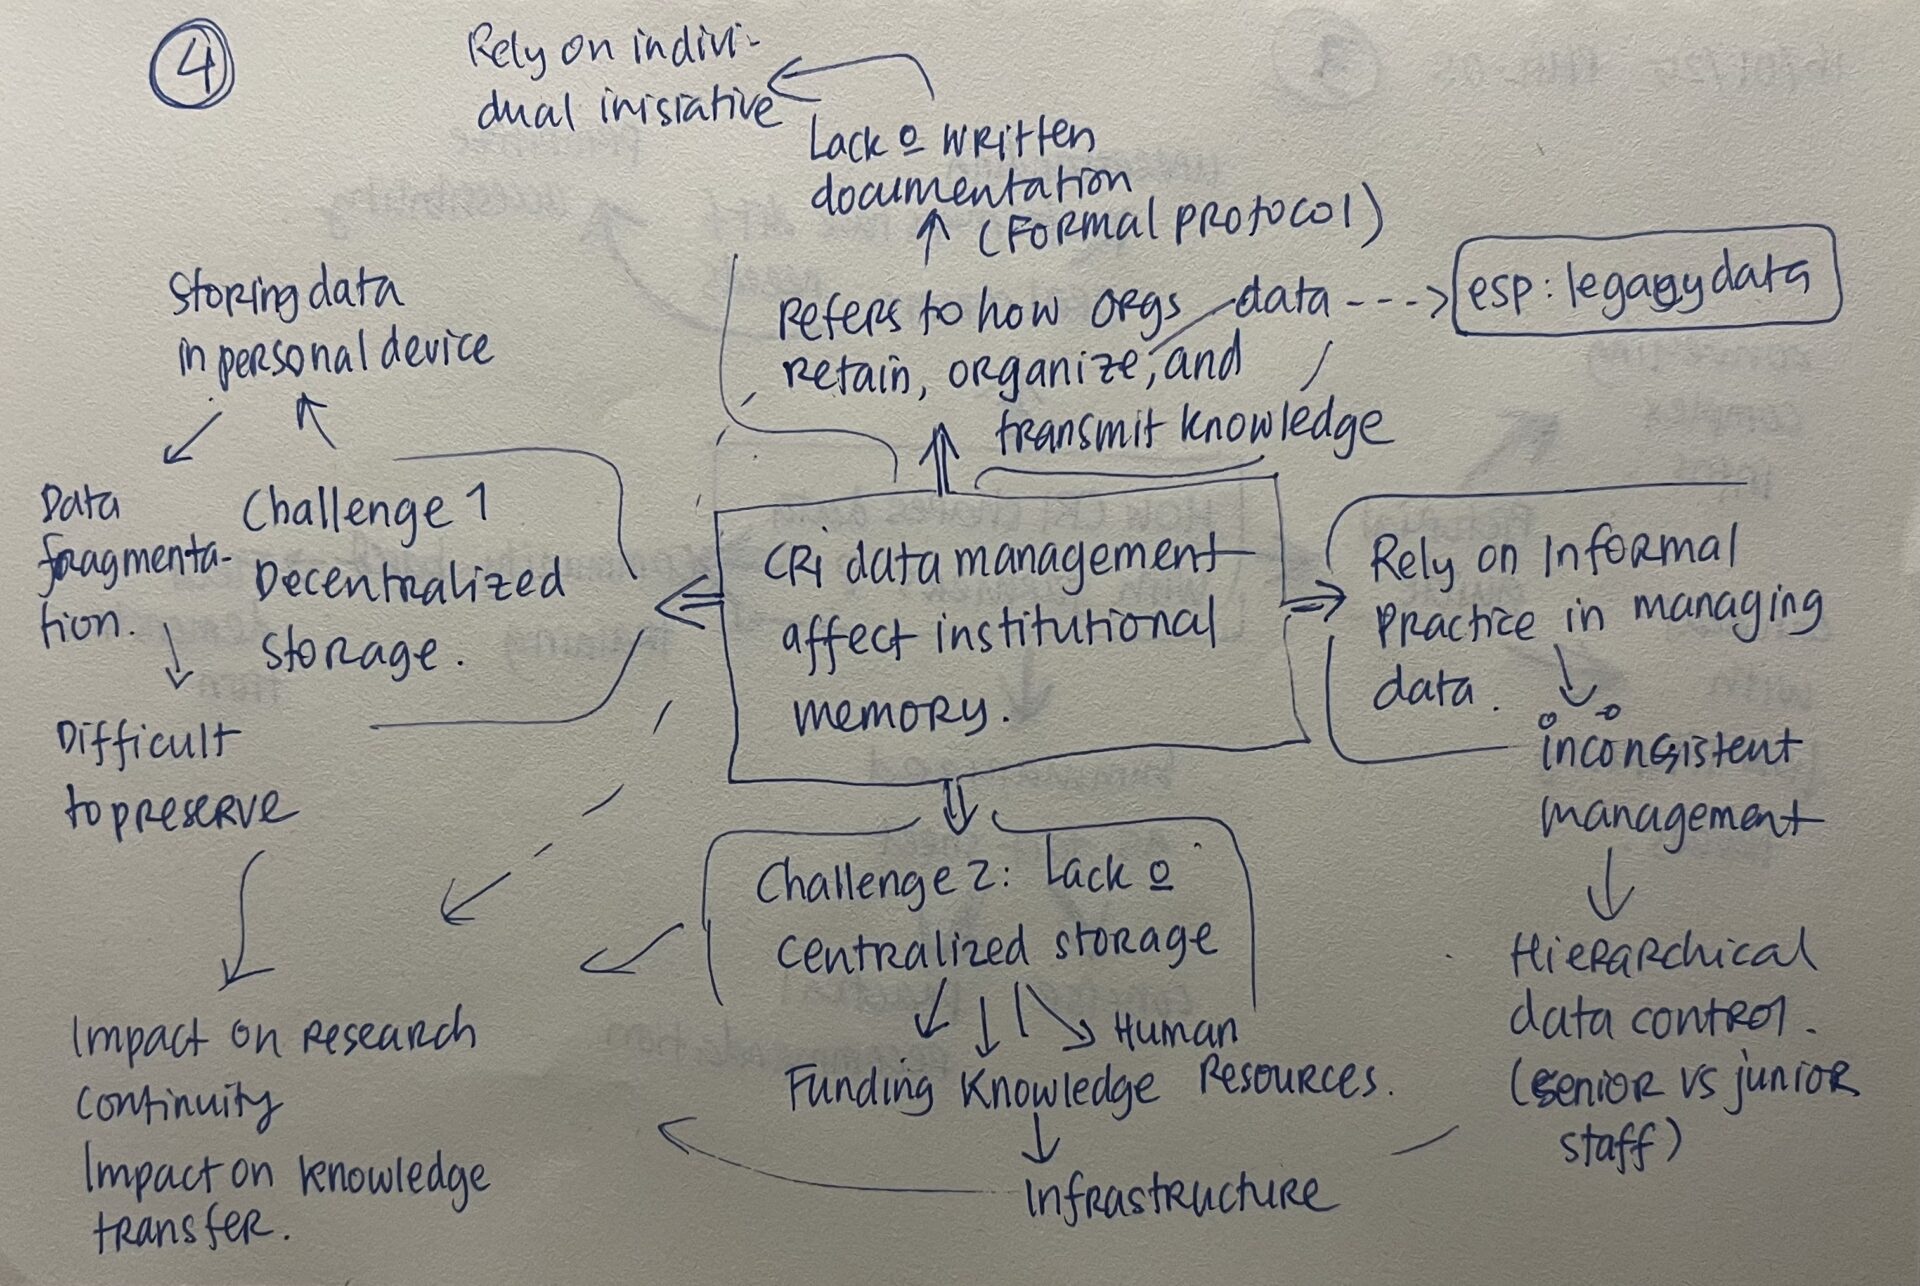 4
Rely on indivi-
dual inisiative
Lack o written
documentation
(Formal protocol)
Refers to how orgs data --->
retain, organize, and
transmit knowledge
esp: legacy data
Storing data
in personal device
Data
fragmenta-
tion.
Challenge 1
Decentralized
storage.
Difficult
to preserve
CRI data management
affect institutional
memory.
Rely on Informal
practice in managing
data.
inconsistent
management
Hierarchical
data control.
(senior vs junior
staff)
Challenge 2: Lack o
centralized storage
Human
Funding Knowledge Resources.
Infrastructure
Impact on research
continuity
Impact on knowledge
transfer.